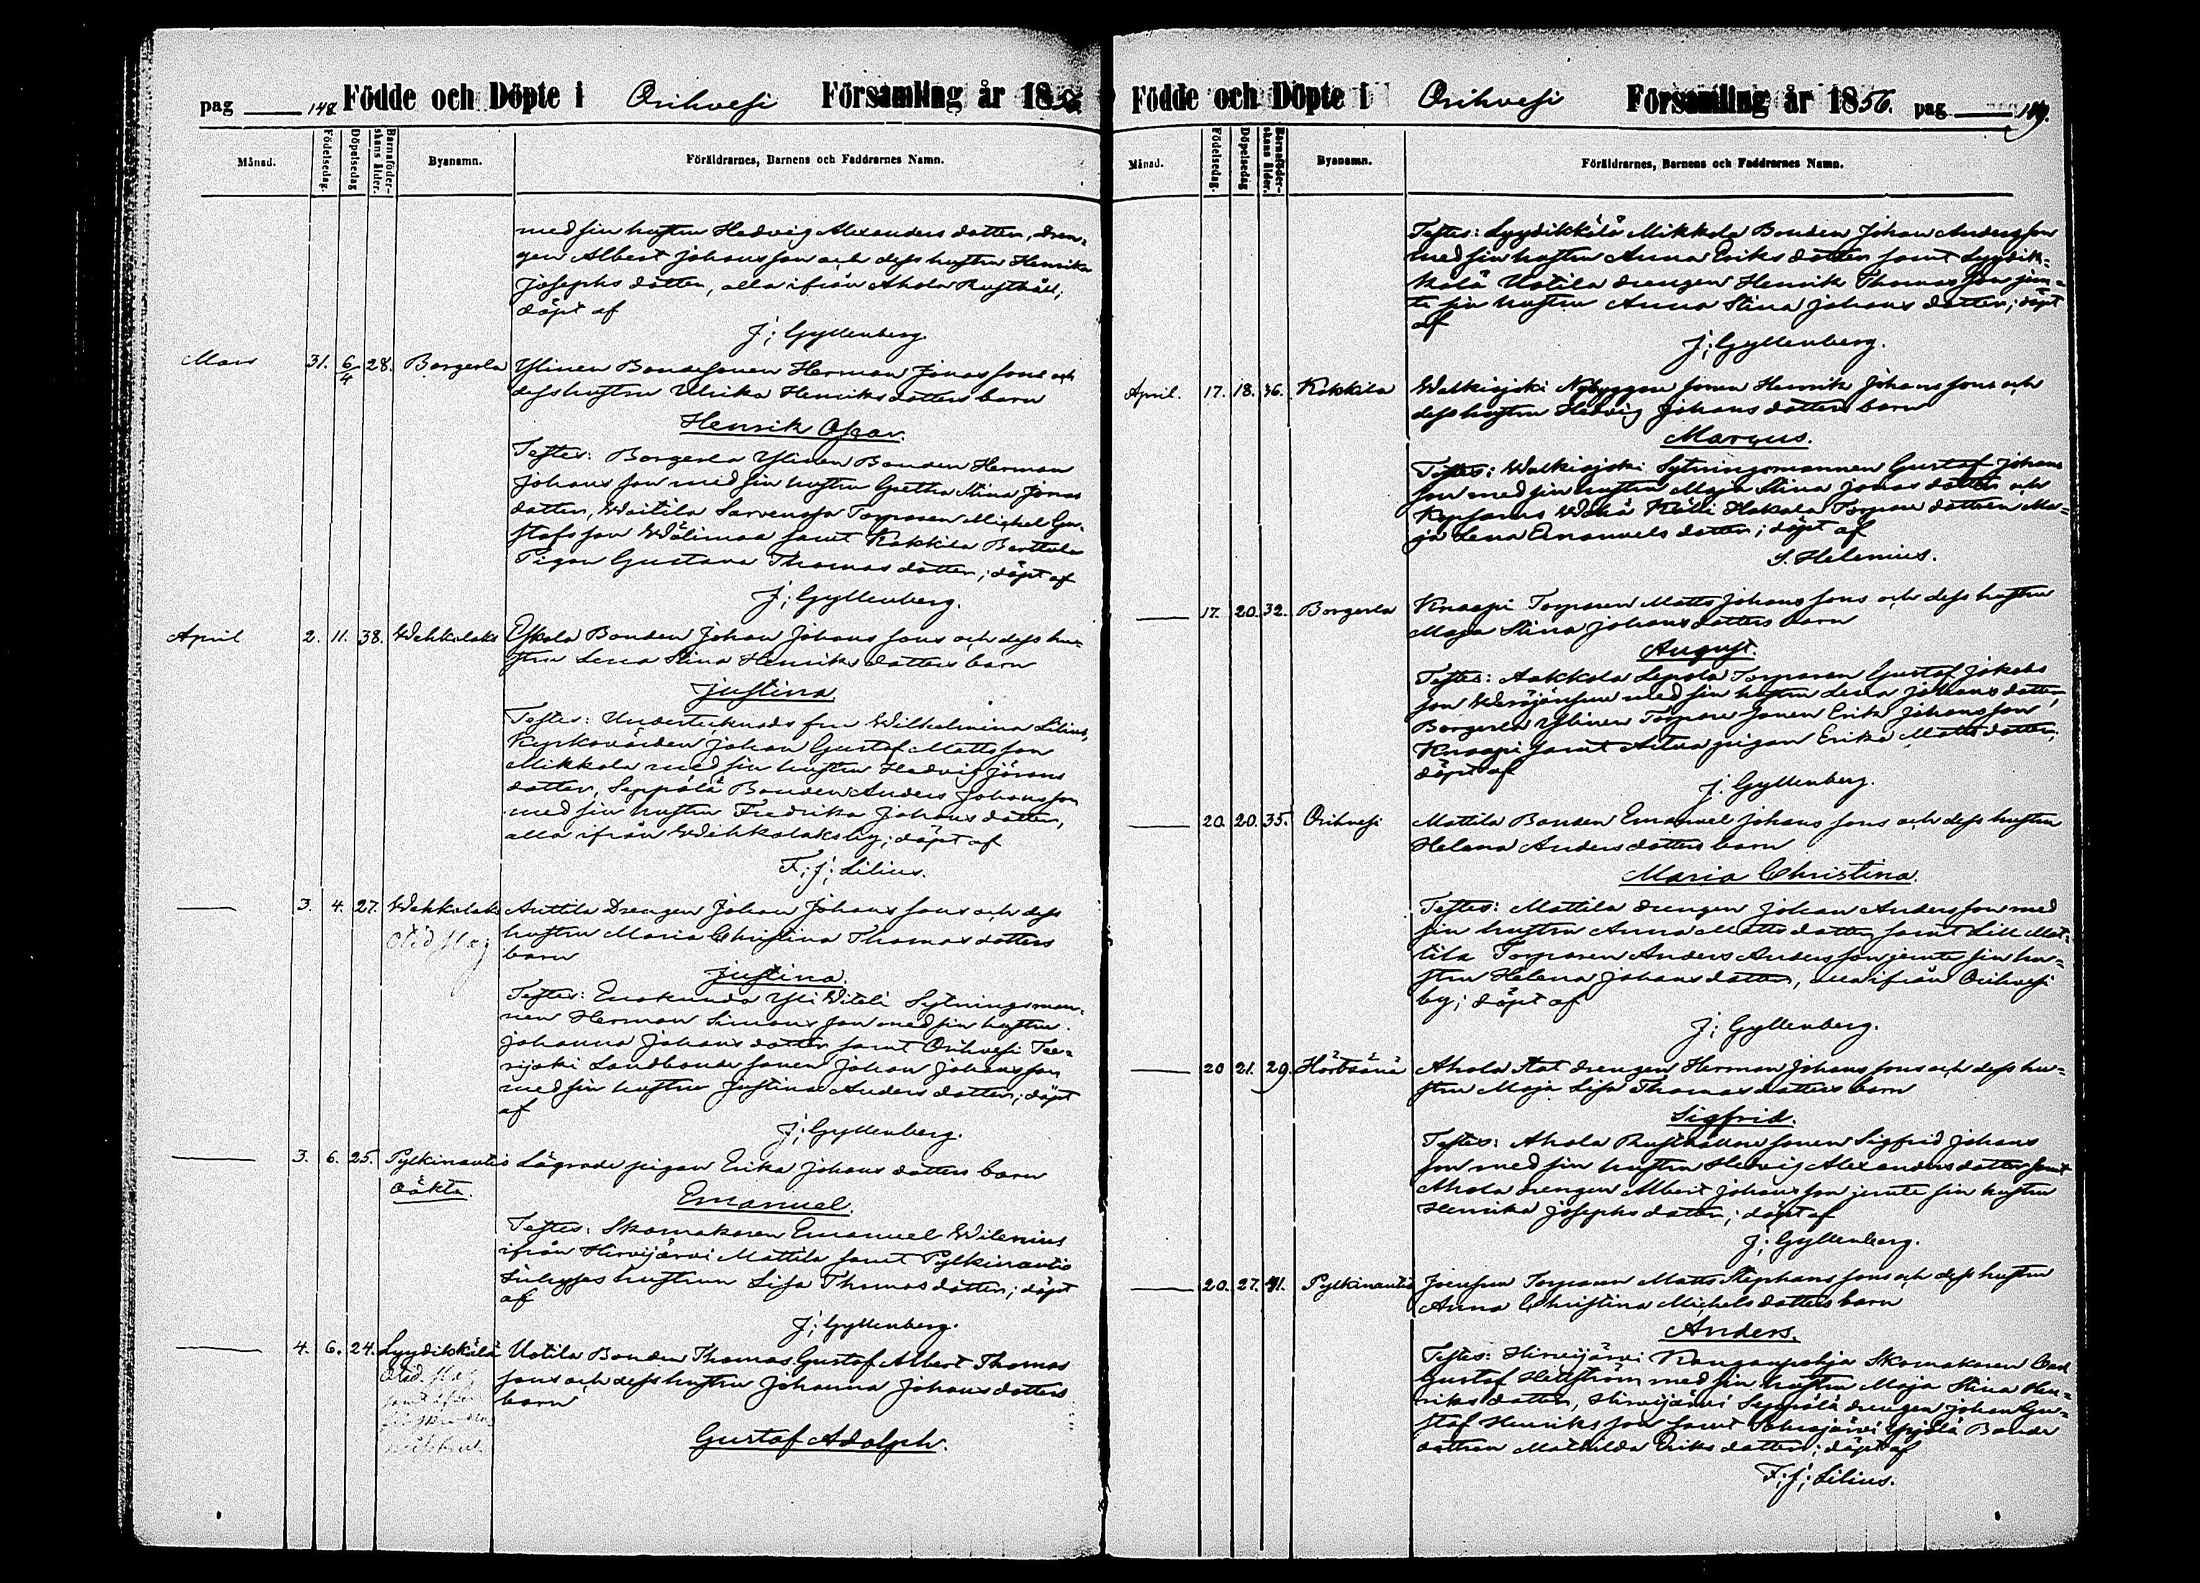 pag 148. Födde och Döpte i Orihvesi Församling år 1856.
Månad. Födelsedag. Döpelsedag Barnaföderskans ålder. Bysnamn. Föräldrarnes, Barnens och Faddrarnes Namn.
med sin hustru Hedvig Alexanders dotter, dren-
gen Albert Johans son och dess hustru Henrika
Josephs dotter, alla ifrån Ahola Rusthåll;
döpt af
J; Gyllenberg.
Mars 31. 6/4 28. Borgerla Ylinen Bondesonen Herman Jonas sons och
dess hustru Ulrika Henriks dotters barn
Henrik Oskar.
Testes: Borgerla Ylinen Bonden Herman
Johans son med sin hustru Gretha Stina Jonas
dotter, Waitila Sarvensja Torparen Michel Gu-
stafs son Wälimaa samt Kokkila Berttula
Pigan Gustava Thomas dotter; döpt af
J; Gyllenberg.
April 2. 11. 38. Wehkalaks Eskola Bonden Johan Johans sons och dess hu-
stru Lena Stina Henriks dotters barn
Justina
Testes: Undertecknads fru Wilhelmina Lilius,
Kyrkovärden Johan Gustaf Matts son
Mikkola med sin hustru Hedvig Jörans
dotter, Seppälä Bonden Anders Johans son
med sin hustru Fredrika Johans dotter,
alla ifrån Wehkalaks by; döpt af
F; J; Lilius.
3. 4. 27. Wehkalaks Anttila Drengen Johan Johans sons och dess
hustru Maria Christina Thomas dotters
barn
Justina.
Testes: Enokunda Yli Witeli Sytningsman-
nen Herman Simons son med sin hustru
Johanna Johans dotter samt Orihvesi Tee-
rijoki Landbonde sonen Johan Johans son
med sin hustru Justina Anders dotter; döpt
af
J; Gyllenberg.
3. 6. 25. Pylkinautio Lägrade pigan Erika Johans dotters barn
Oäkta.
Emanuel.
Testes: Skomakaren Emanuel Wilenius
ifrån Hirvijärvi Mattila samt Pylkinautio
hustrun Lisa Thomas dotter; döpt
af
J; Gyllenberg.
4. 6. 24. Lyydikkälä Uotila Bonden Thomas Gustaf Albert Thomas
sons och dess hustru Johanna Johans dotters
barn
Gustaf Adolph.
Födde och Döpte i Orihvesi Församling år 1856. pag 149.
Månad. Födelsedag. Döpelsedag Barnaföderskans ålder. Bysnamn. Föräldrarnes, Barnens och Faddrarnes Namn.
Testes: Lyydikkälä Mikkola Bonden Johan Anders son
med sin hustru Anna Eriks dotter samt Lyydik-
kälä Uotila drengen Henrik Thomas son jem-
te sin hustru Anna Stina Johans dotter; döpt
af
J; Gyllenberg.
April. 17. 18. 36. Kokkila Walkiajoki Nybyggare sonen Henrik Johans sons och
dess hustru Hedvig Johans dotters barn
Marcus.
Testes: Walkiajoki Sytningsmannen Gustaf Johans
son med sin hustru Maja Stina Jonas dotter och
Wähä Hakala Torpare dottren Ma-
ja Lena Emanuels dotter; döpt af
S. Helenius.
17. 20. 32. Borgerla Knaapi Torparen Matts Johans sons och dess hustru
Maja Stina Johans dotters barn
August.
Testes: Aakkola Lepola Torparen Gustaf Jakobs
son med sin hustru Lena Johans dotter,
Borgerla Ylinen Torpare sonen Erik Johans son
Knaapi samt pigan Erika Matts dotter,
döpt af
J. Gyllenberg.
20. 20. 35. Orihvesi Mattila Bonden Emanuel Johans sons och dess hustru
Helena Anders dotters barn
Maria Christina.
Testes: Mattila drengen Johan Anders son med
sin hustru Anna Matts dotter samt Lill Mat-
tila Torparen Anders Anders son jemte sin hu-
stru Helena Johans dotter, alla ifrån Orihvesi
by; döpt af
J; Gyllenberg.
20 21. 29. Hörtsänä Ahola Stat drengen Herman Johans sons och dess hu-
stru Maja Lisa Thomas dotters barn
Sigfrid.
Testes: Ahola Rusthållare sonen Sigfrid Johans
son med sin hustru Hedvig Alexanders dotter samt
Ahola drengen Albert Johans son jemte sin hustru
Henrika Josephs dotter; döpt af
J; Gyllenberg.
20. 27. 41. Pylkinautio Joensuu Torparen Matts Stephans sons och dess hustru
Anna Christina Michels dotters barn
Anders.
Testes: Hirvijärvi Kangaspohja Skomakaren Carl
Gustaf Hedström med sin hustru Maja Stina Hen-
riks dotter, Hirvijärvi Seppälä drengen Johan Gu-
staf Henriks son samt Yijälä Bonde
dottren Mathilda Eriks dotter; döpt af
F; J; Lilius.